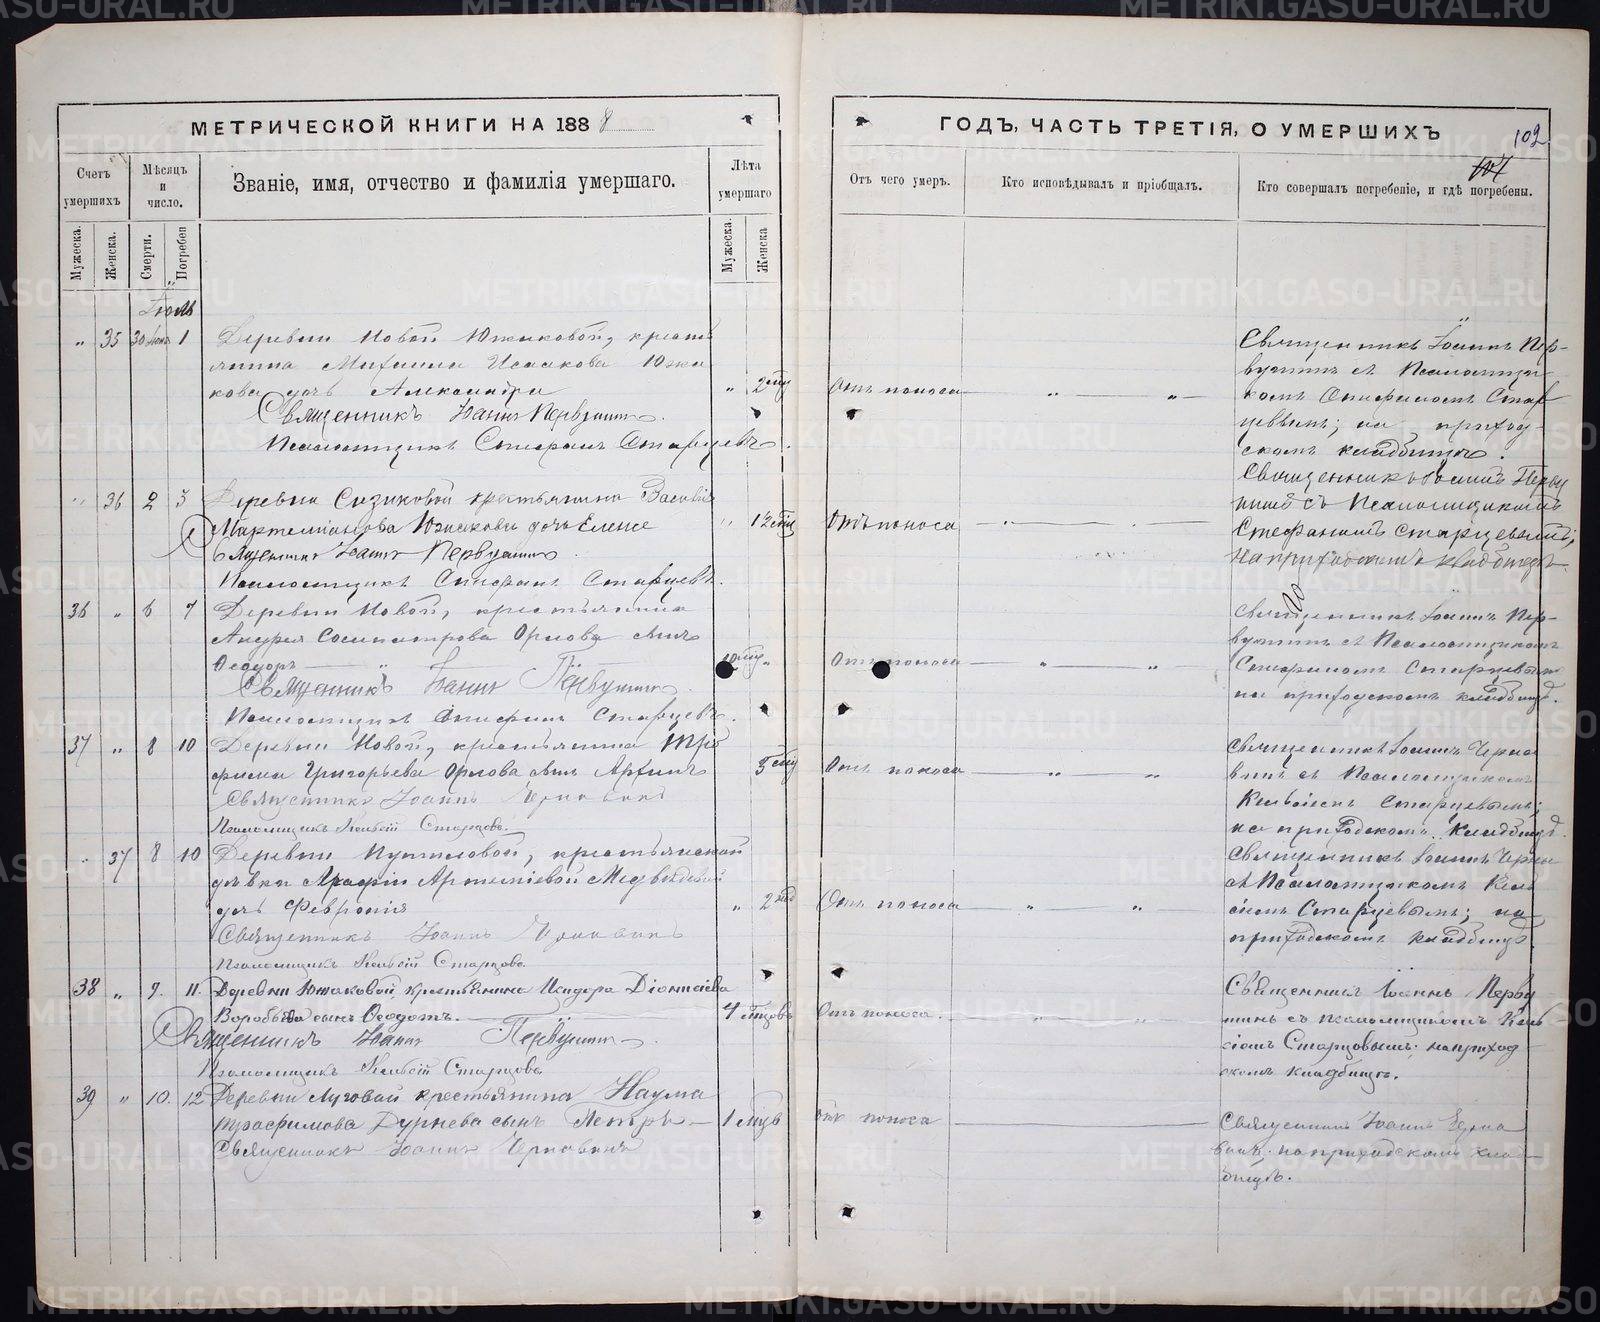 МЕТРИЧЕСКОЙ КНИГИ НА 1888
ГОДЪ, ЧАСТЬ ТРЕТІЯ, О УМЕРШИХЪ
102
Счетъ умершихъ
Мѣсяцъ и число.
Званіе, имя, отчество и фамилія умершаго.
Лѣта умершаго
Отъ чего умеръ.
Кто исповѣдывалъ и пріобщалъ.
Кто совершалъ погребеніе, и гдѣ погребены.
Мужеска.
Женска.
Смерти.
Погребен
Мужеска.
Женска
Іюль
„ 35 30 Іюня 1 Деревни Новой Южаковой, кресть
янина Михаила Исаакова Южа
кова дочь Александра „ 2 Отъ поноса
Священникъ Іоаннъ Первушинъ.
Псаломщикъ Стефанъ Старцевъ.
Священникъ Іоаннъ Пер-
вушинъ съ Псаломщи
комъ Стефаномъ Стар
цевымъ; на приход-
скомъ кладбищѣ.
„ 36 2 3 Деревни Сизиковой крестьянина
Мартеміанова Южакова дочь Елена „ 12 Отъ поноса
Священникъ Іоаннъ Первушинъ
Псаломщикъ Стефанъ Старцевъ.
Священникъ Іоаннъ Перву
шинъ съ Псаломщикомъ
Стефаномъ Старцевымъ;
на приходскомъ кладбищѣ.
36 „ 6 7 Деревни Новой, крестьянина
Андрея Сосипатрова Орлова сынъ
Ѳеодоръ „ Отъ поноса
Священникъ Іоаннъ Первушинъ.
Псаломщикъ Стефанъ Старцевъ.
Священникъ Іоаннъ Пер-
вушинъ съ Псаломщикомъ
Стефаномъ Старцевымъ
на приходскомъ кладбищѣ.
37 „ 8 10 Деревни Новой, крестьянина Тро
фима Григорьева Орлова сынъ 5 Отъ поноса
Священникъ Іоаннъ Чернавинъ
Псаломщикъ Кельсій Старцовъ.
Священникъ Іоаннъ Черна
винъ съ Псаломщикомъ
Кельсіемъ Старцевымъ;
на приходскомъ кладбищѣ.
„ 37 8 10 Деревни Путиловой, крестьянской
дѣвки Артеміевой Медвѣдевой
дочь Февронія „ 2 Отъ поноса
Священникъ Іоаннъ Чернавинъ
Псаломщикъ Кельсій Старцовъ.
Священникъ Іоаннъ Черна
съ Псаломщикомъ Кель
сіемъ Старцевымъ; на
приходскомъ кладбищѣ.
38 „ 9. 11. Деревни Южаковой, крестьянина Исидора Діонисіева
Воробьева сынъ Ѳеодотъ. 4 Отъ поноса.
Священникъ Іоаннъ Первушинъ.
Псаломщикъ Кельсій Старцовъ.
Священникъ Іоаннъ Перву
шинъ съ псаломщикомъ Кель-
сіемъ Старцовымъ; на приход
скомъ кладбищѣ.
39 „ 10. 12 Деревни Луговой крестьянина Наума
Трофимова Дурнева сынъ Петръ 1 Отъ поноса
Священникъ Іоаннъ Чернавинъ
Священникъ Іоаннъ Черна
винъ; на приходскомъ клад-
бищѣ.
METRIKI.GASO-URAL.RU